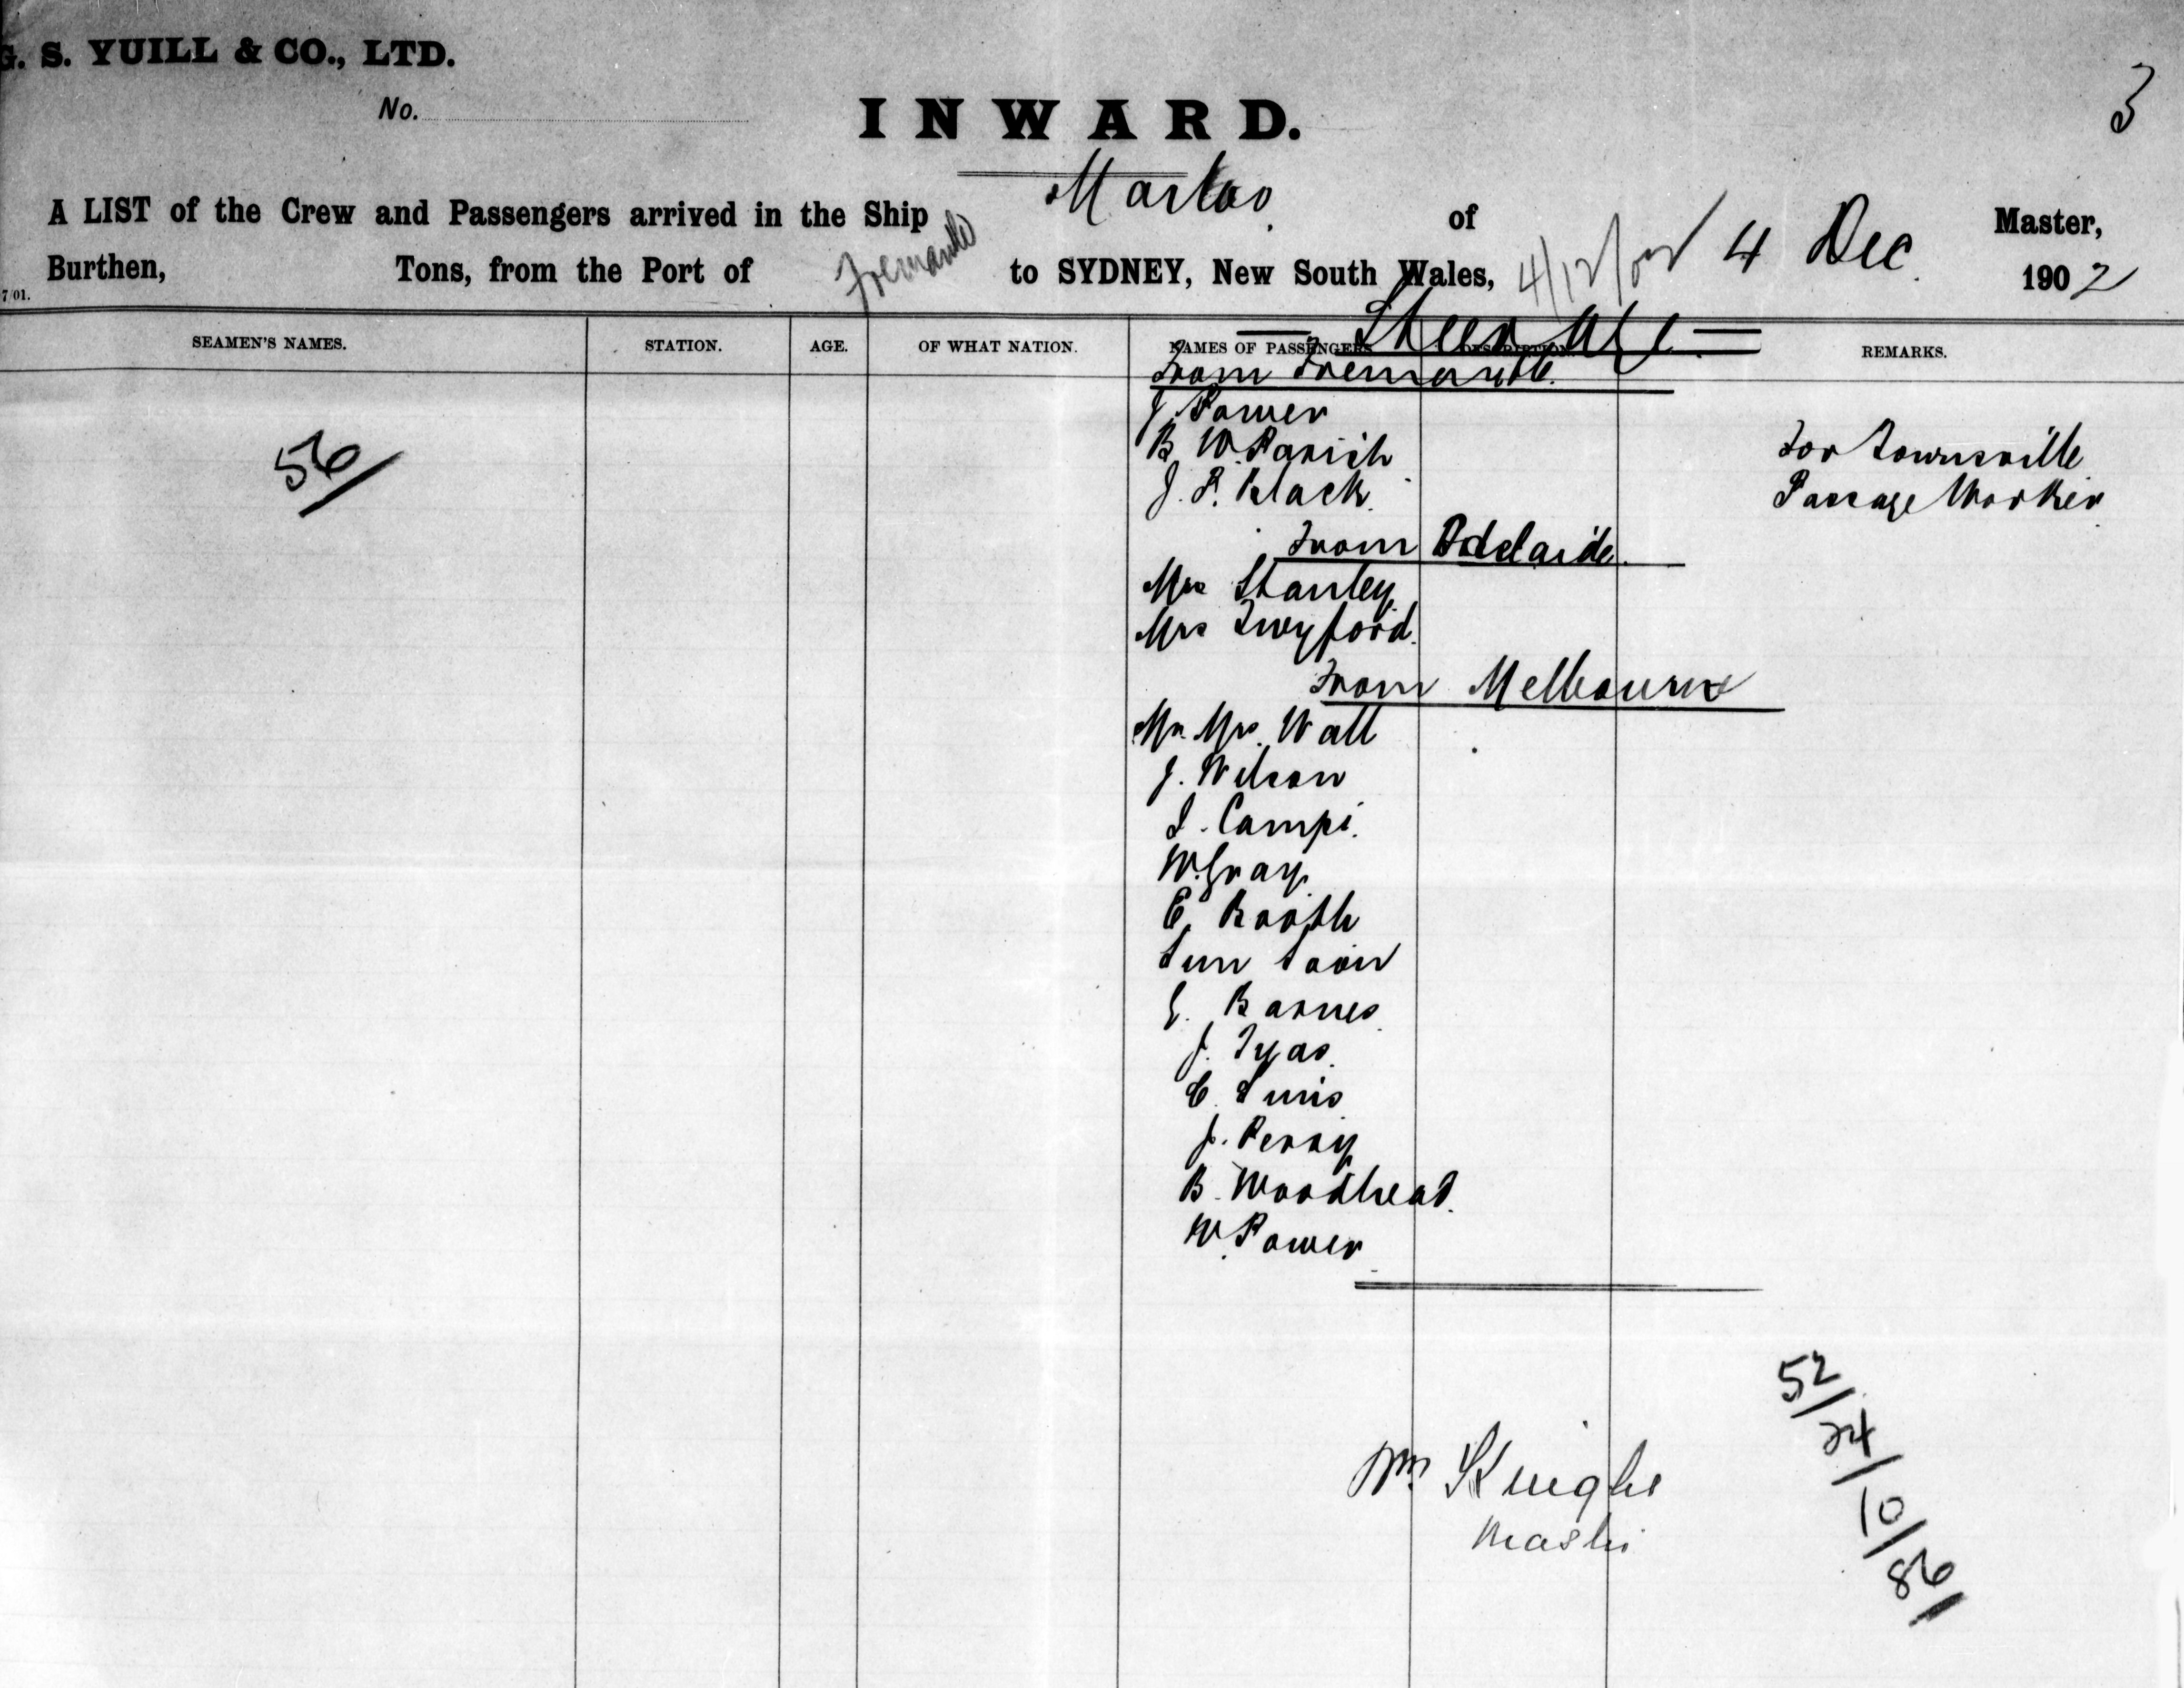 G. S. YUILL & CO., LTD.
No.
3
INWARD.
A LIST of the Crew and Passengers arrived in the Ship Marloo of Master,
Burthen, Tons, from the Port of Fremantle to SYDNEY, New South Wales, 4/12/02 4 Dec 1902
7/01.
Steerage
SEAMEN'S NAMES. STATION. AGE. OF WHAT NATION. NAMES OF PASSENGERS. DESCRIPTION. REMARKS.
From Fremantle.
J. Power
B. W. Parish For Townsville
J. P. Black. Passage Worker
56/
From Adelaide.
Mrs Stanley
Mrs Twyford.
From Melbourne
Mr. Mrs. Watt
J. Wilson
I. Campi.
W. Gray.
E. Booth
Sun Soon
G. Barnes
J. Tyas.
C. Sunis
J. Perry
B. Woodhead.
W. Power
52/
24/
10/
86/
Wm Knight
Master